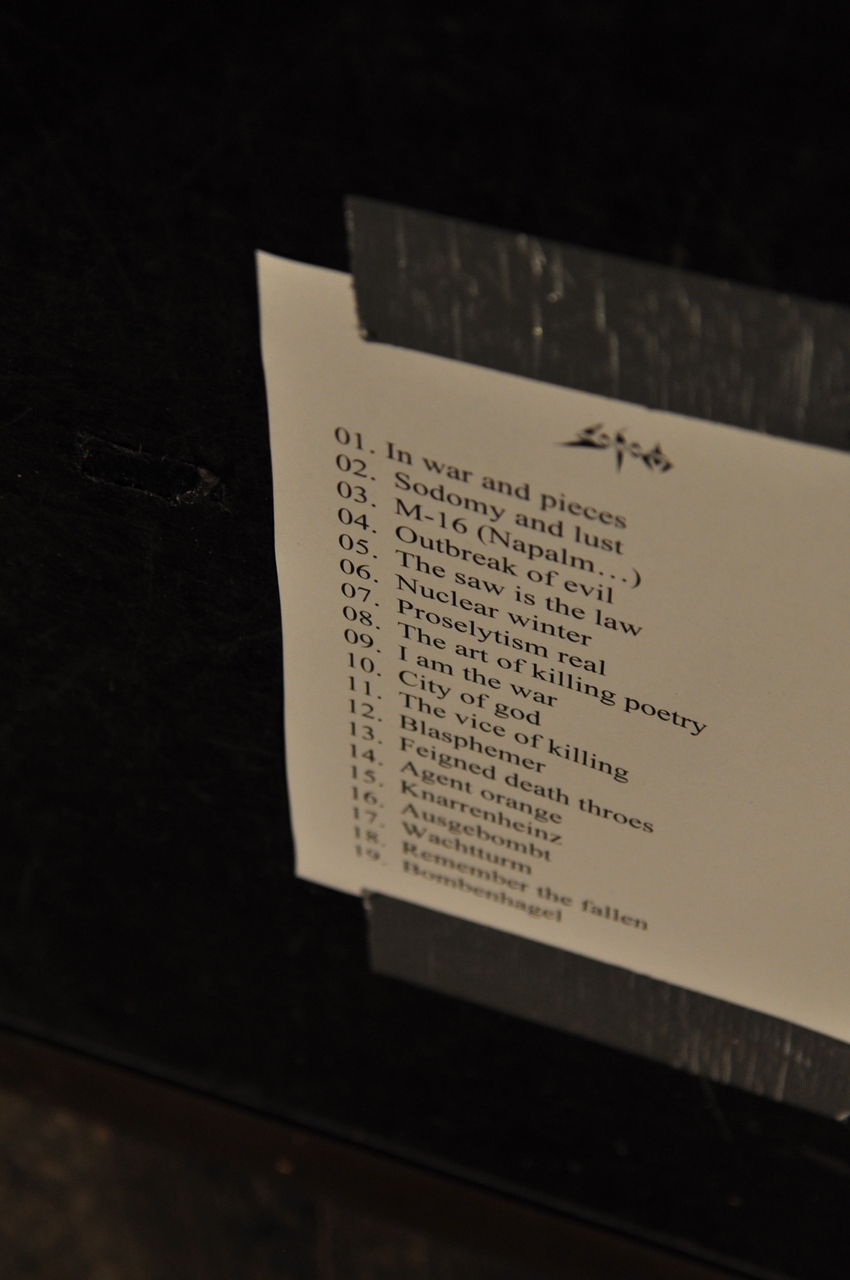 Sodom
01. In war and pieces
02. Sodomy and lust
03. M-16 (Napalm...)
04. Outbreak of evil
05. The saw is the law
06. Nuclear winter
07. Proselytism real
08. The art of killing poetry
09. I am the war
10. City of god
11. The vice of killing
12. Blasphemer
13. Feigned death throes
14. Agent orange
15. Knarrenheinz
16. Ausgebombt
17. Wachtturm
18. Remember the fallen
19. Bombenhagel